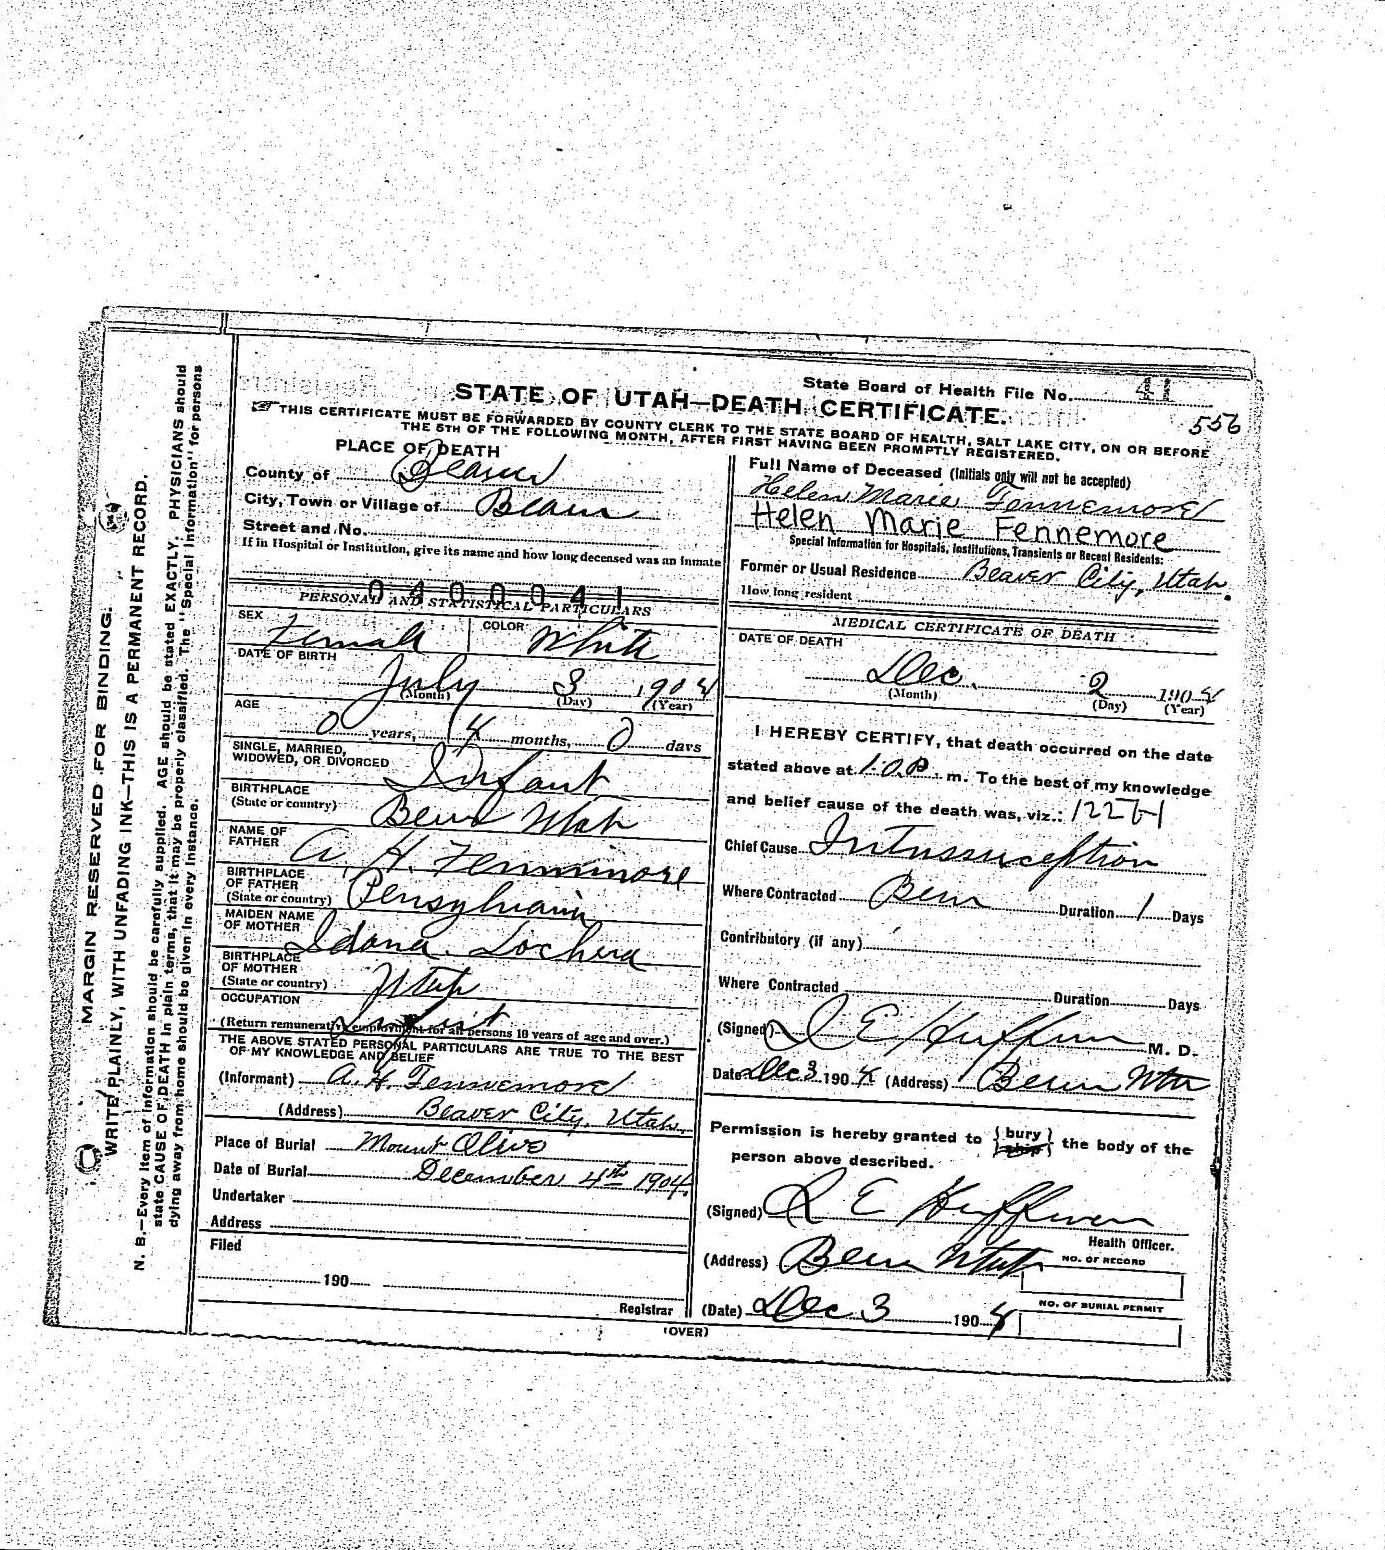 State Board of Health File No. 41
STATE OF UTAH—DEATH CERTIFICATE.
556
THIS CERTIFICATE MUST BE FORWARDED BY COUNTY CLERK TO THE STATE BOARD OF HEALTH, SALT LAKE CITY, ON OR BEFORE
THE 5TH OF THE FOLLOWING MONTH, AFTER FIRST HAVING BEEN PROMPTLY REGISTERED.
MARGIN RESERVED FOR BINDING.
WRITE PLAINLY, WITH UNFADING INK—THIS IS A PERMANENT RECORD.
N. B.—Every item of information should be carefully supplied. AGE should be stated EXACTLY. PHYSICIANS should
state CAUSE OF DEATH in plain terms, that it may be properly classified. The "Special Information" for persons
dying away from home should be given in every instance.
PLACE OF DEATH
County of Beaver
City, Town or Village of Beaver
Street and No.
If in Hospital or Institution, give its name and how long deceased was an inmate
040041
PERSONAL AND STATISTICAL PARTICULARS
SEX Female COLOR White
DATE OF BIRTH
July 3 1904
(Month) (Day) (Year)
AGE
0 years, 4 months, 0 days
SINGLE, MARRIED,
WIDOWED, OR DIVORCED Infant
BIRTHPLACE
(State or country) Beaver Utah
NAME OF
FATHER A. H. Fenminore
BIRTHPLACE
OF FATHER
(State or country) Pensylvania
MAIDEN NAME
OF MOTHER Idona
BIRTHPLACE
OF MOTHER
(State or country) Utah
OCCUPATION
Infant
(Return remunerative employment for all persons 10 years of age and over.)
THE ABOVE STATED PERSONAL PARTICULARS ARE TRUE TO THE BEST
OF MY KNOWLEDGE AND BELIEF
(Informant) A. H. Fennemore
(Address) Beaver City, Utah.
Place of Burial Mount Olive
Date of Burial December 4th 1904.
Undertaker
Address
Filed
190
Registrar
Full Name of Deceased (Initials only will not be accepted)
Helen Marie Fennemore
Helen Marie Fennemore
Special Information for Hospitals, Institutions, Transients or Recent Residents:
Former or Usual Residence Beaver City, Utah.
How long resident
MEDICAL CERTIFICATE OF DEATH
DATE OF DEATH
Dec. 2 1904
(Month) (Day) (Year)
I HEREBY CERTIFY, that death occurred on the date
stated above at 10 P. m. To the best of my knowledge
and belief cause of the death was, viz.:
Chief Cause Intussuception
Where Contracted Beaver Duration 1 Days
Contributory (if any)
Where Contracted Duration Days
(Signed) M. D.
Date Dec 3 1904 (Address) Beaver Utah
Permission is hereby granted to { bury / ship } the body of the
person above described.
(Signed)
Health Officer.
(Address) Beaver Utah
NO. OF RECORD
NO. OF BURIAL PERMIT
(Date) Dec 3 1904
(OVER)